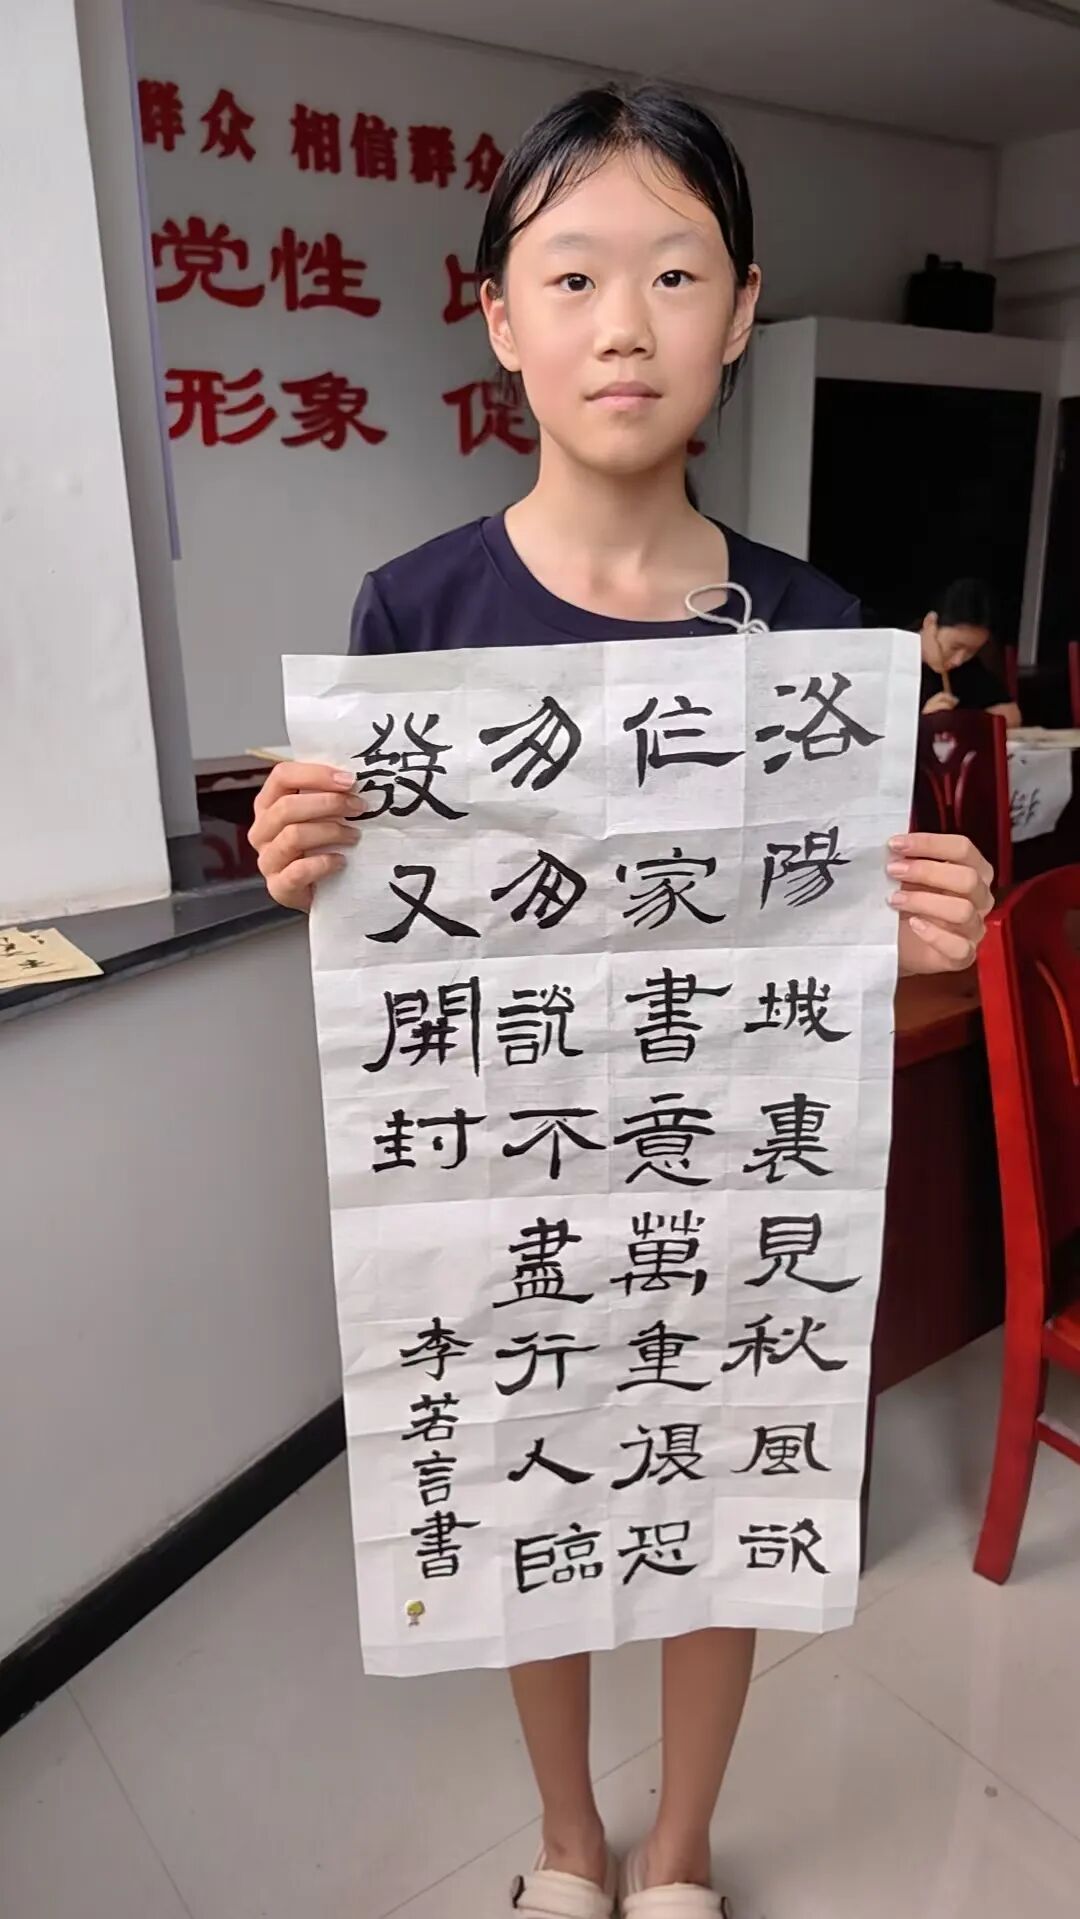 群众 相信群众
党性 比
形象 促
洛陽城裏見秋風欲
作家書意萬重復恐
匆匆説不盡行人臨
發又開封
李若言書